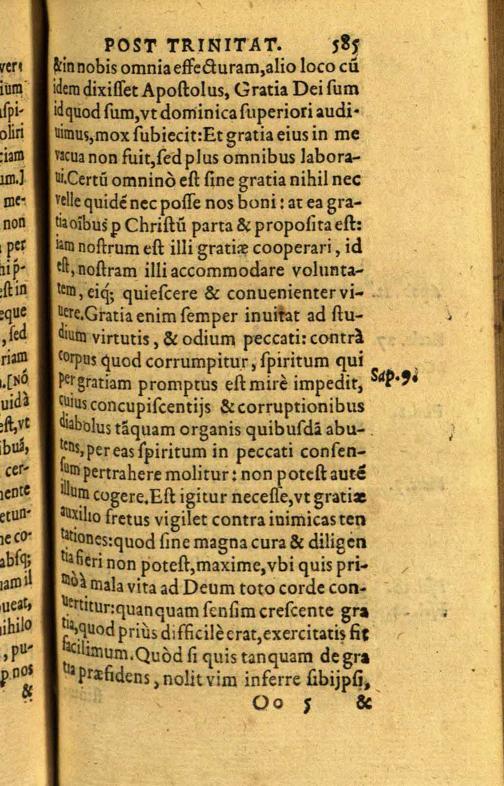 POST TRINITAT. 585
& in nobis omnia effecturam, alio loco cũ
idem dixisset Apostolus, Gratia Dei sum
id quod sum, vt dominica superiori audi-
uimus, mox subiecit: Et gratia eius in me
vacua non fuit, sed plus omnibus labora-
ui. Certũ omninò est sine gratia nihil nec
velle quidẽ nec posse nos boni: at ea gra-
tia oĩbus ꝑ Christũ parta & proposita est:
iam nostrum est illi gratiæ cooperari, id
est, nostram illi accommodare volunta-
tem, eiq; quiescere & conuenienter vi-
uere. Gratia enim semper inuitat ad stu-
dium virtutis, & odium peccati: contrà
corpus quod corrumpitur, spiritum qui
per gratiam promptus est mirè impedit, Sap. 9.
cuius concupiscentijs & corruptionibus
diabolus tãquam organis quibusdã abu-
tens, per eas spiritum in peccati consen-
sum pertrahere molitur: non potest autẽ
illum cogere. Est igitur necesse, vt gratiæ
auxilio fretus vigilet contra inimicas ten
tationes: quod sine magna cura & diligen
tia fieri non potest, maxime, vbi quis pri-
mò à mala vita ad Deum toto corde con-
uertitur: quanquam sensim crescente gra
tia, quod priùs difficilè erat, exercitatis fit
facilimum. Quòd si quis tanquam de gra
tia præfidens, nolit vim inferre sibijpsi,
Oo 5 &